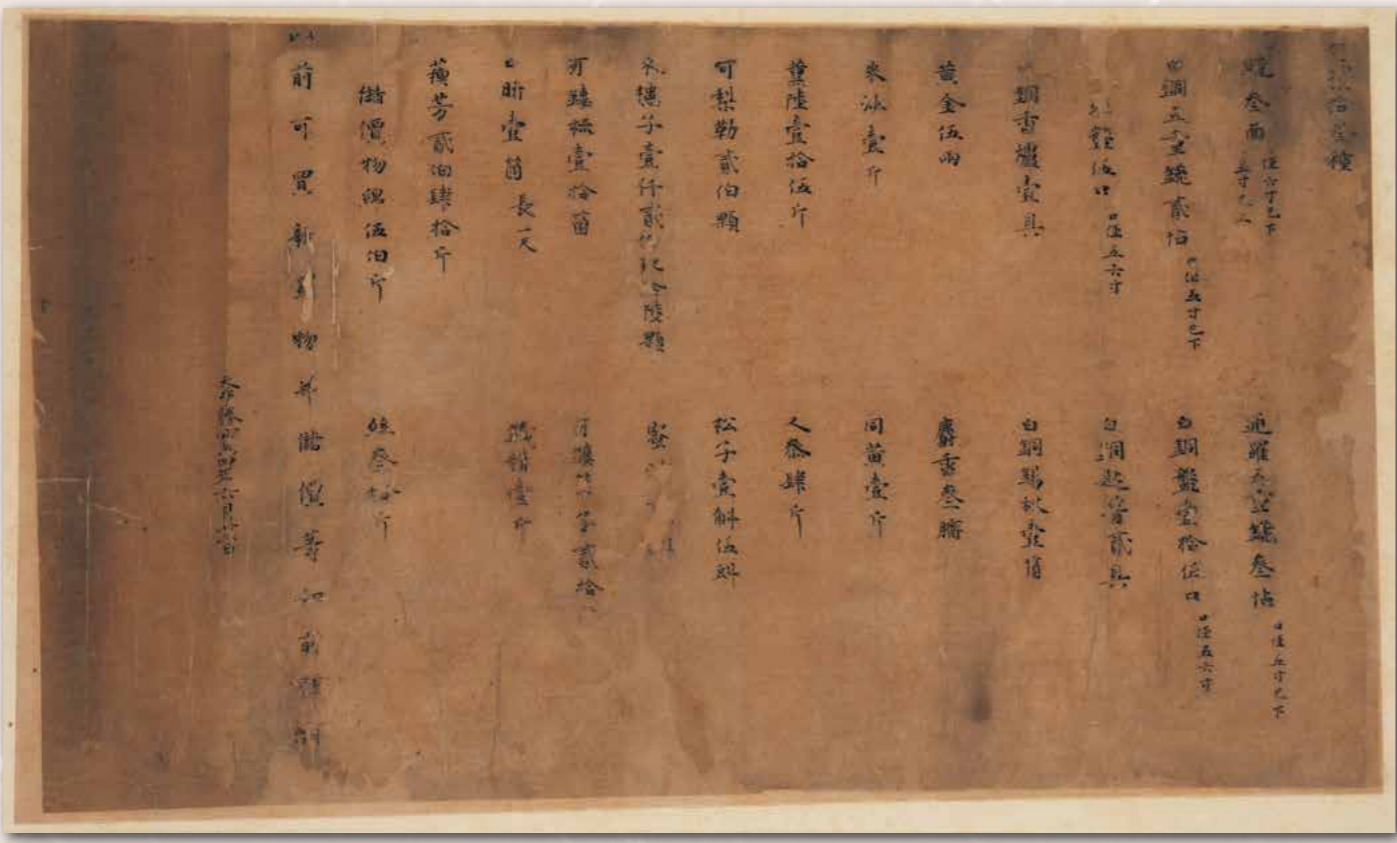 拾參種
鏡參面 徑六寸已下 五寸已上 迊羅五重鋺參帖 口徑五寸已下
白銅五重鋺貳帖 口徑五寸已下 白銅盤壹拾伍口 口徑五六寸
盤伍口 口徑五六寸 白銅匙箸貳具
銅香爐壹具 白銅錫杖壹箇
黄金伍兩 麝香參臍
朱沙壹斤 同黄壹斤
薰陸壹拾伍斤 人參肆斤
可梨勒貳伯顆 松子壹斛伍㪷
木槵子壹仟貳伯 陸顆 蜜
牙鏤梳壹拾箇 牙鏤 子貳拾
口脂壹箇 長一尺 鐵精壹斤
蘇芳貳伯肆拾斤
儲價物綿伍伯斤 絲參拾斤
以前可買新羅物并儲價等如前謹解
天平勝寶四年六月 日